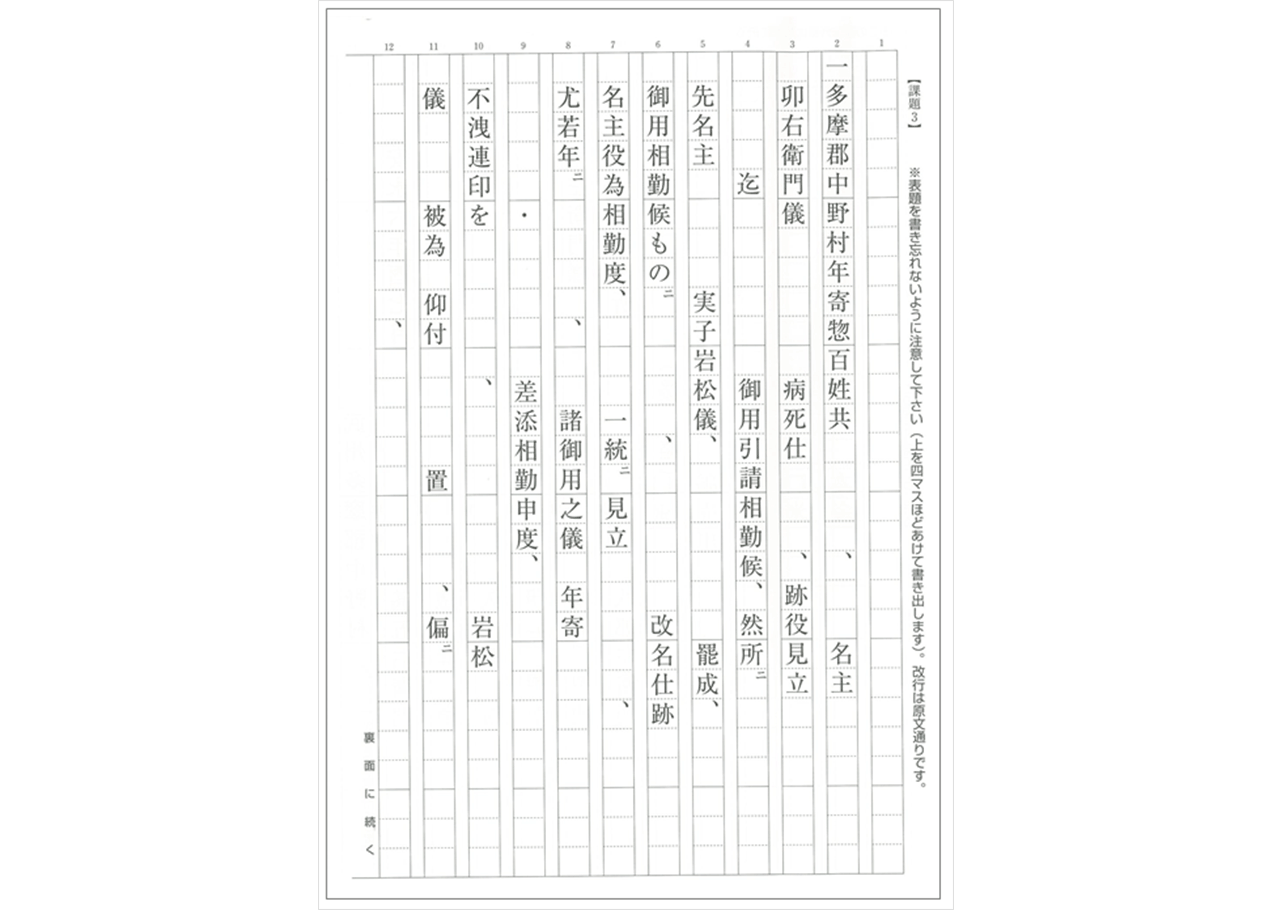 【課題3】 ※表題を書き忘れないように注意して下さい(上を四マスほどあけて書き出します)。改行は原文通りです。
1
2 一多摩郡中野村年寄惣百姓共 、 名主
3 卯右衛門儀 病死仕 、跡役見立
4 迄 御用引請相勤候、然所ニ
5 先名主 実子岩松儀、 罷成、
6 御用相勤候ものニ 、 改名仕跡
7 名主役為相勤度、 一統ニ見立 、
8 尤若年ニ 、 諸御用之儀 年寄
9 ・ 差添相勤申度、
10 不洩連印を 、 岩松
11 儀 被為 仰付 置 、偏ニ
12 、
裏面に続く